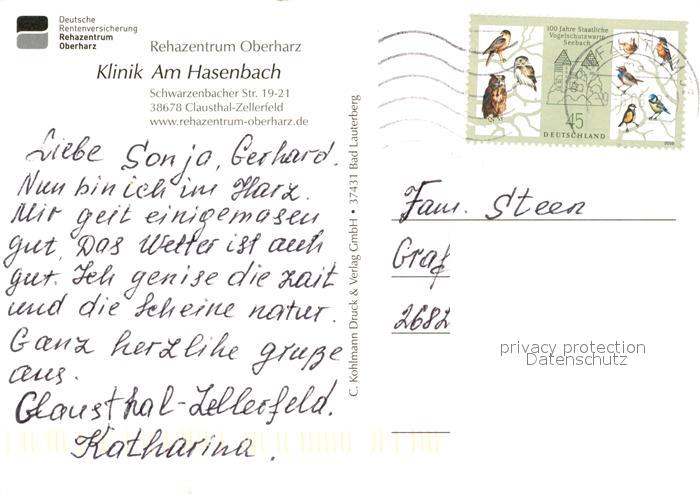 Deutsche
Rentenversicherung
Rehazentrum
Oberharz
Rehazentrum Oberharz
Klinik Am Hasenbach
Schwarzenbacher Str. 19-21
38678 Clausthal-Zellerfeld
www.rehazentrum-oberharz.de
Liebe Sonja, Gerhard.
Nun bin ich im Harz.
Mir geit einigemasen
gut, Das Wetter ist auch
gut. Ich genise die zait
und die scheine natur.
Ganz herzlihe gruße
aus.
Clausthal-Zellerfeld.
Katharina.
C. Kohlmann Druck & Verlag GmbH • 37431 Bad Lauterberg
100 Jahre Staatliche
Vogelschutzwarte
Seebach
45
DEUTSCHLAND
2008
Fam. Steen
Graf
2682
privacy protection
Datenschutz